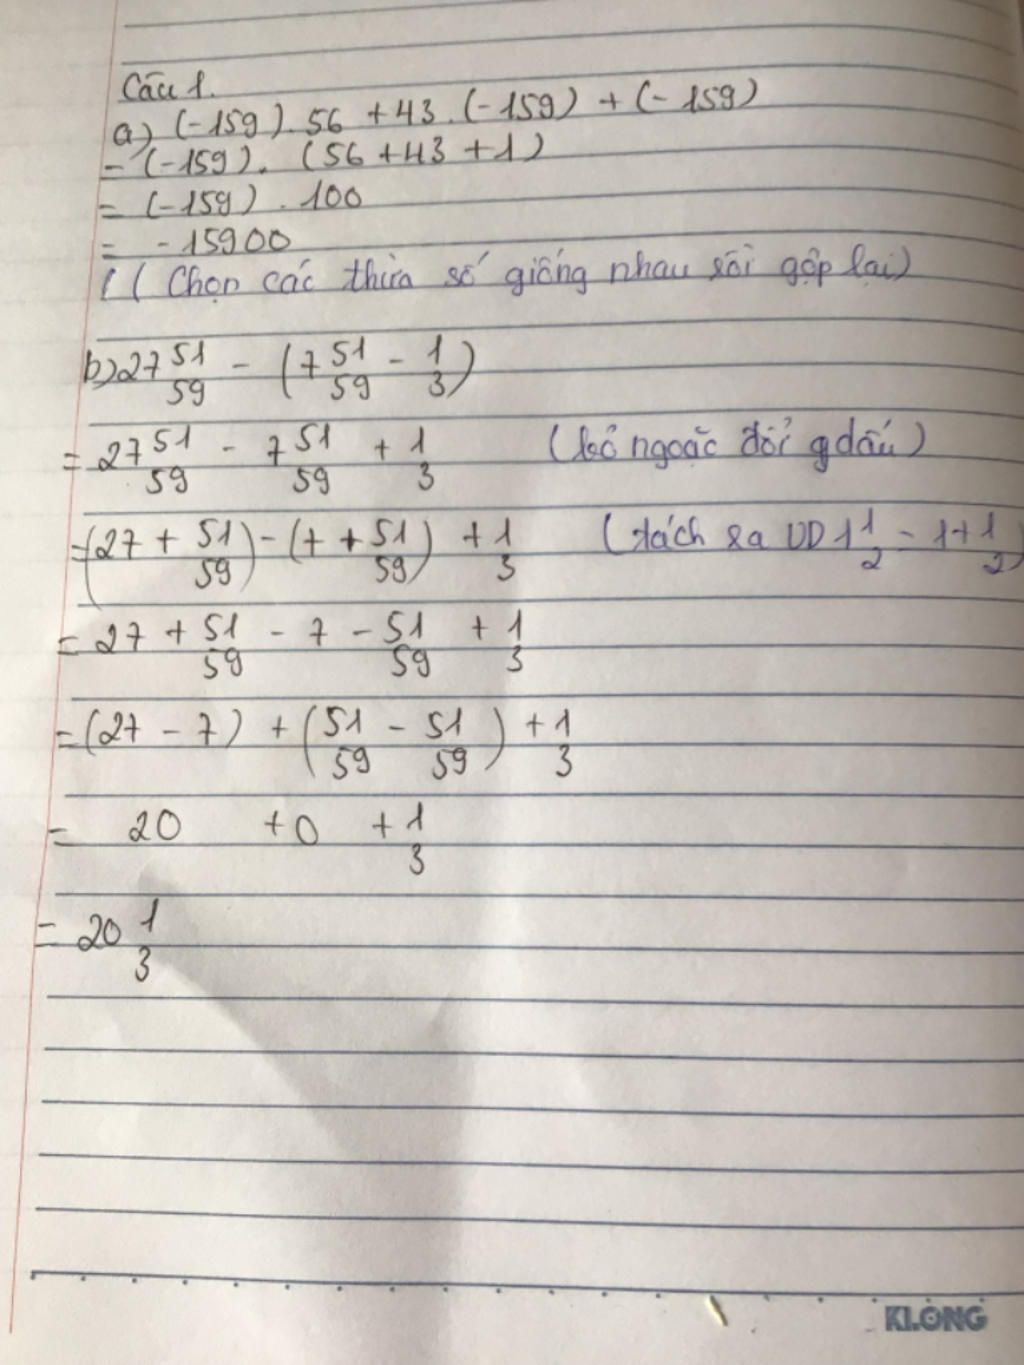 Câu 1.
a) (-159). 56 + 43. (-159) + (-159)
= (-159). (56 + 43 + 1)
= (-159) . 100
= -15900
(( Chọn các thừa số giống nhau rồi gộp lại)
b) 27 51/59 - (7 51/59 - 1/3)
= 27 51/59 - 7 51/59 + 1/3 (bỏ ngoặc đổi dấu)
= (27 + 51/59) - (7 + 51/59) + 1/3 (tách ra VD 1 1/2 = 1+1/2)
= 27 + 51/59 - 7 - 51/59 + 1/3
= (27 - 7) + (51/59 - 51/59) + 1/3
= 20 + 0 + 1/3
= 20 1/3
KLONG